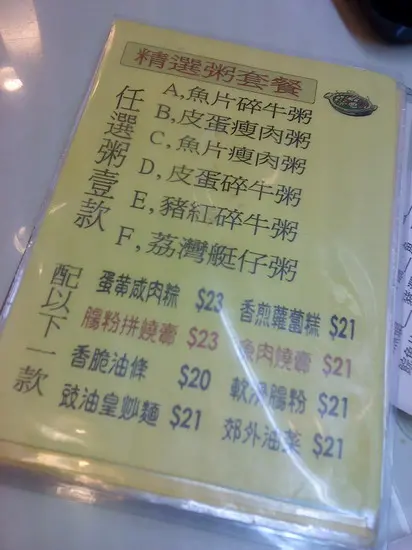 精選粥套餐
任選粥壹款
A,魚片碎牛粥
B,皮蛋瘦肉粥
C,魚片瘦肉粥
D,皮蛋碎牛粥
E,豬紅碎牛粥
F,荔灣艇仔粥
配以下一款
蛋黄咸肉粽 $23 香煎蘿蔔糕 $21
腸粉拼燒賣 $23 魚肉燒賣 $21
香脆油條 $20 軟滑腸粉 $21
豉油皇炒麵 $21 郊外油菜 $21